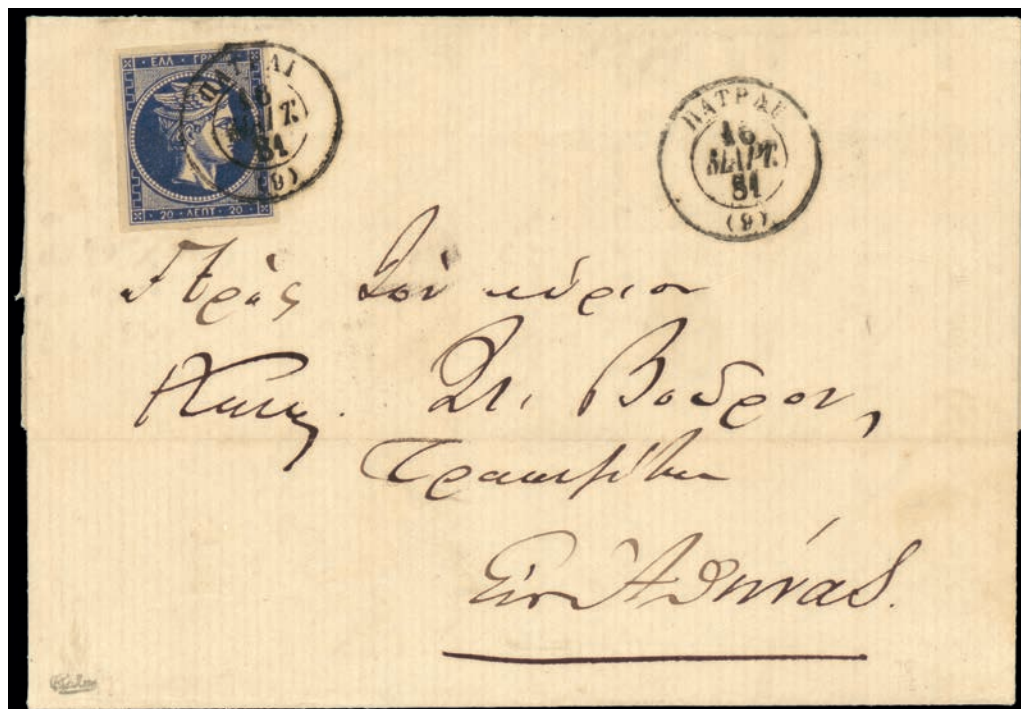 ΕΛΛ ΓΡ
20 ΛΕΠΤ 20
ΠΑΤΡΑΙ
16
ΜΑΡΤ.
81
(9)
ΠΑΤΡΑΙ
16
ΜΑΡΤ.
81
(9)
Πρὸς τὸν κύριον
Βοῦρον,
Τραπεζίτην
Εἰς Ἀθήνας.